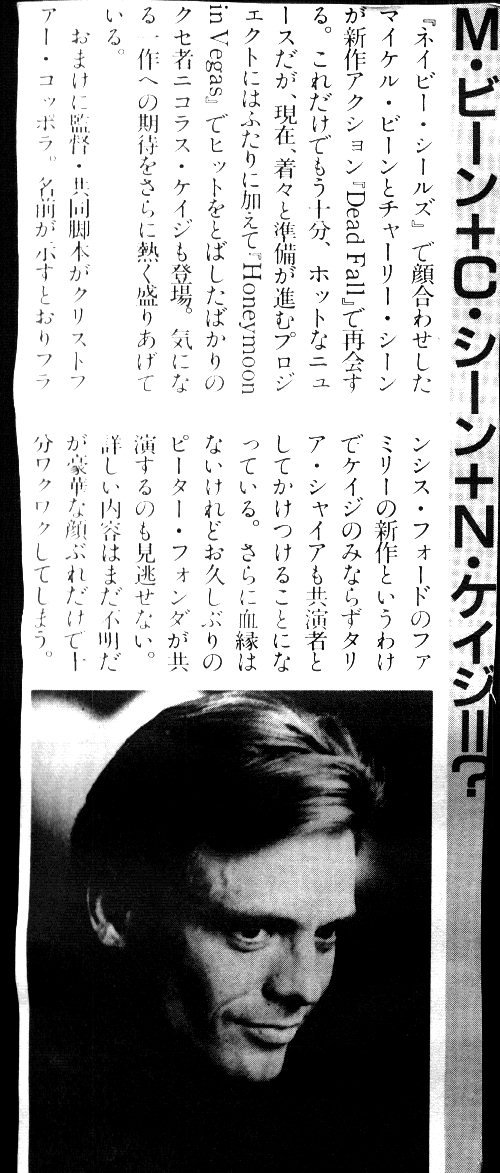 M・ビーン＋C・シーン＋N・ケイジ＝？
『ネイビー・シールズ』で顔合わせした
マイケル・ビーンとチャーリー・シーン
が新作アクション『Dead Fall』で再会す
る。これだけでもう十分、ホットなニュ
ースだが、現在、着々と準備が進むプロジ
ェクトにはふたりに加えて『Honeymoon
in Vegas』でヒットをとばしたばかりの
クセ者ニコラス・ケイジも登場。気にな
る一作への期待をさらに熱く盛りあげて
いる。
おまけに監督・共同脚本がクリストフ
ァー・コッポラ。名前が示すとおりフラ
ンシス・フォードのファ
ミリーの新作というわけ
でケイジのみならずタリ
ア・シャイアも共演者と
してかけつけることにな
っている。さらに血縁は
ないけれどお久しぶりの
ピーター・フォンダが共
演するのも見逃せない。
詳しい内容はまだ不明だ
が豪華な顔ぶれだけで十
分ワクワクしてしまう。